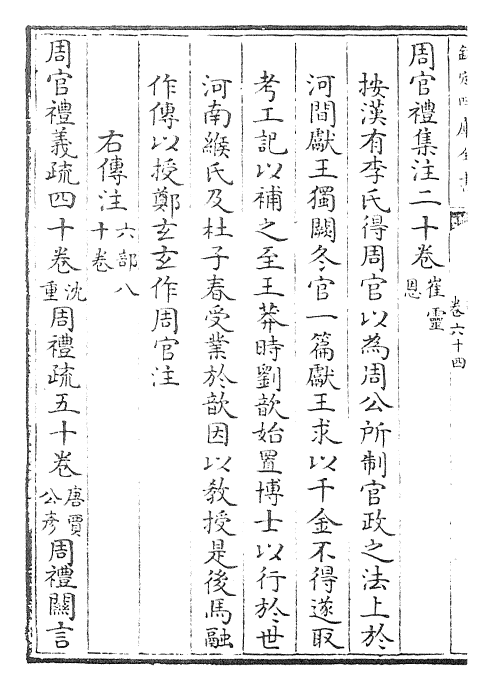 欽定四庫全書
卷六十四
周官禮集注二十卷崔靈恩
按漢有李氏得周官以為周公所制官政之法上於
河間獻王獨闕冬官一篇獻王求以千金不得遂取
考工記以補之至王莽時劉歆始置博士以行於世
河南緱氏及杜子春受業於歆因以教授是後馬融
作傳以授鄭玄玄作周官注
右傳注六部八十卷
周官禮義疏四十卷沈重周禮疏五十卷唐賈公彥周禮關言